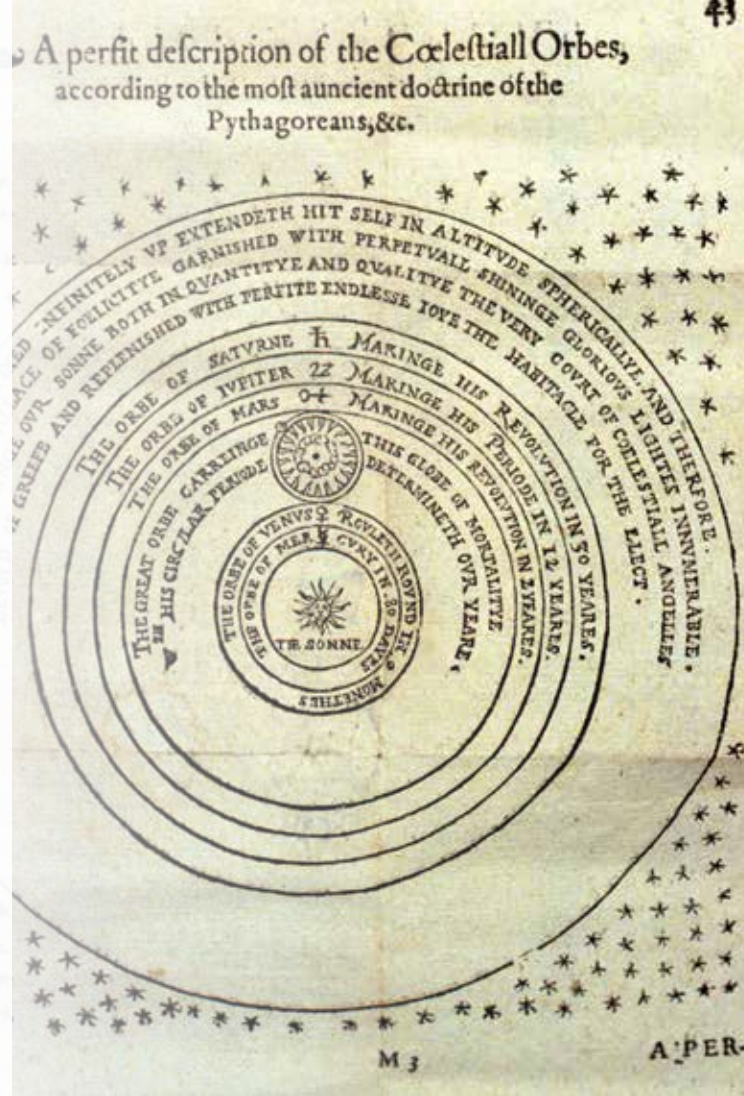 43
A perfit deſcription of the Cœleſtiall Orbes,
according to the moſt auncient doctrine of the
Pythagoreans, &c.
INFINITELY VP EXTENDETH HIT SELF IN ALTITVDE SPHERICALLYE, AND THERFORE.
OF FOELICITYE GARNISHED WITH PERPETVALL SHININGE GLORIOVS LIGHTES INNVMERABLE.
OVR SONNE BOTH IN QVANTITYE AND QVALITYE THE VERY COVRT OF COELESTIALL ANGELLES
GREEFE AND REPLENISHED WITH PERFITE ENDLESSE IOYE THE HABITACLE FOR THE ELECT.
THE ORBE OF SATVRNE ♄ MAKINGE HIS REVOLVTION IN 30 YEARES.
THE ORBE OF IVPITER ♃ MAKINGE HIS PERIODE IN 12 YEARES.
THE ORBE OF MARS ♂ MAKINGE HIS REVOLVTION IN 2 YEARES.
THE GREAT ORBE CARREINGE THIS GLOBE OF MORTALITYE
HIS CIRCVLAR PERIODE DETERMINETH OVR YEARE.
THE ORBE OF VENVS ♀ ROVLETH ROVND IN 9 MONETHES
THE ORBE OF MERCVRY IN 80 DAYES
THE SONNE
M 3
A PER-